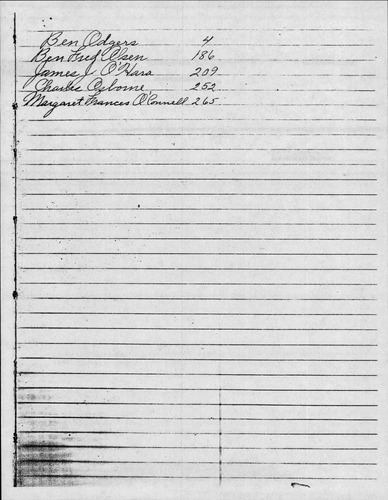 Ben Odgers 4
Ben Fred Olsen 186
James J O'Hara 209
Charlie Osborne 252
Margaret Frances O'Connell 265